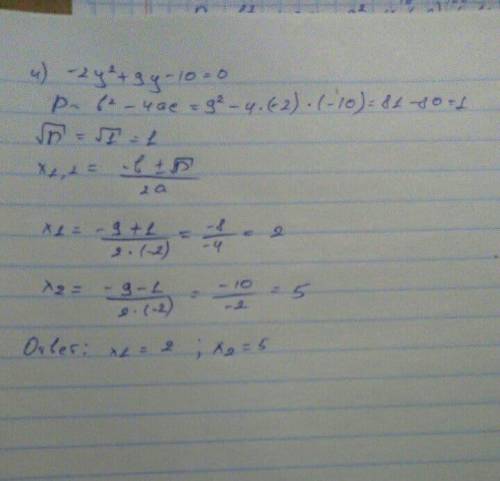 4) -2y²+9y-10=0
D= b²-4ac = 9²-4·(-2)·(-10)=81-80=1
√D = √1 = 1
x1,2 = (-b ± √D)/2a
x1 = (-9+1)/(2·(-2)) = (-8)/(-4) = 2
x2 = (-9-1)/(2·(-2)) = (-10)/(-2) = 5
Ответ: x1 = 2 ; x2 = 5